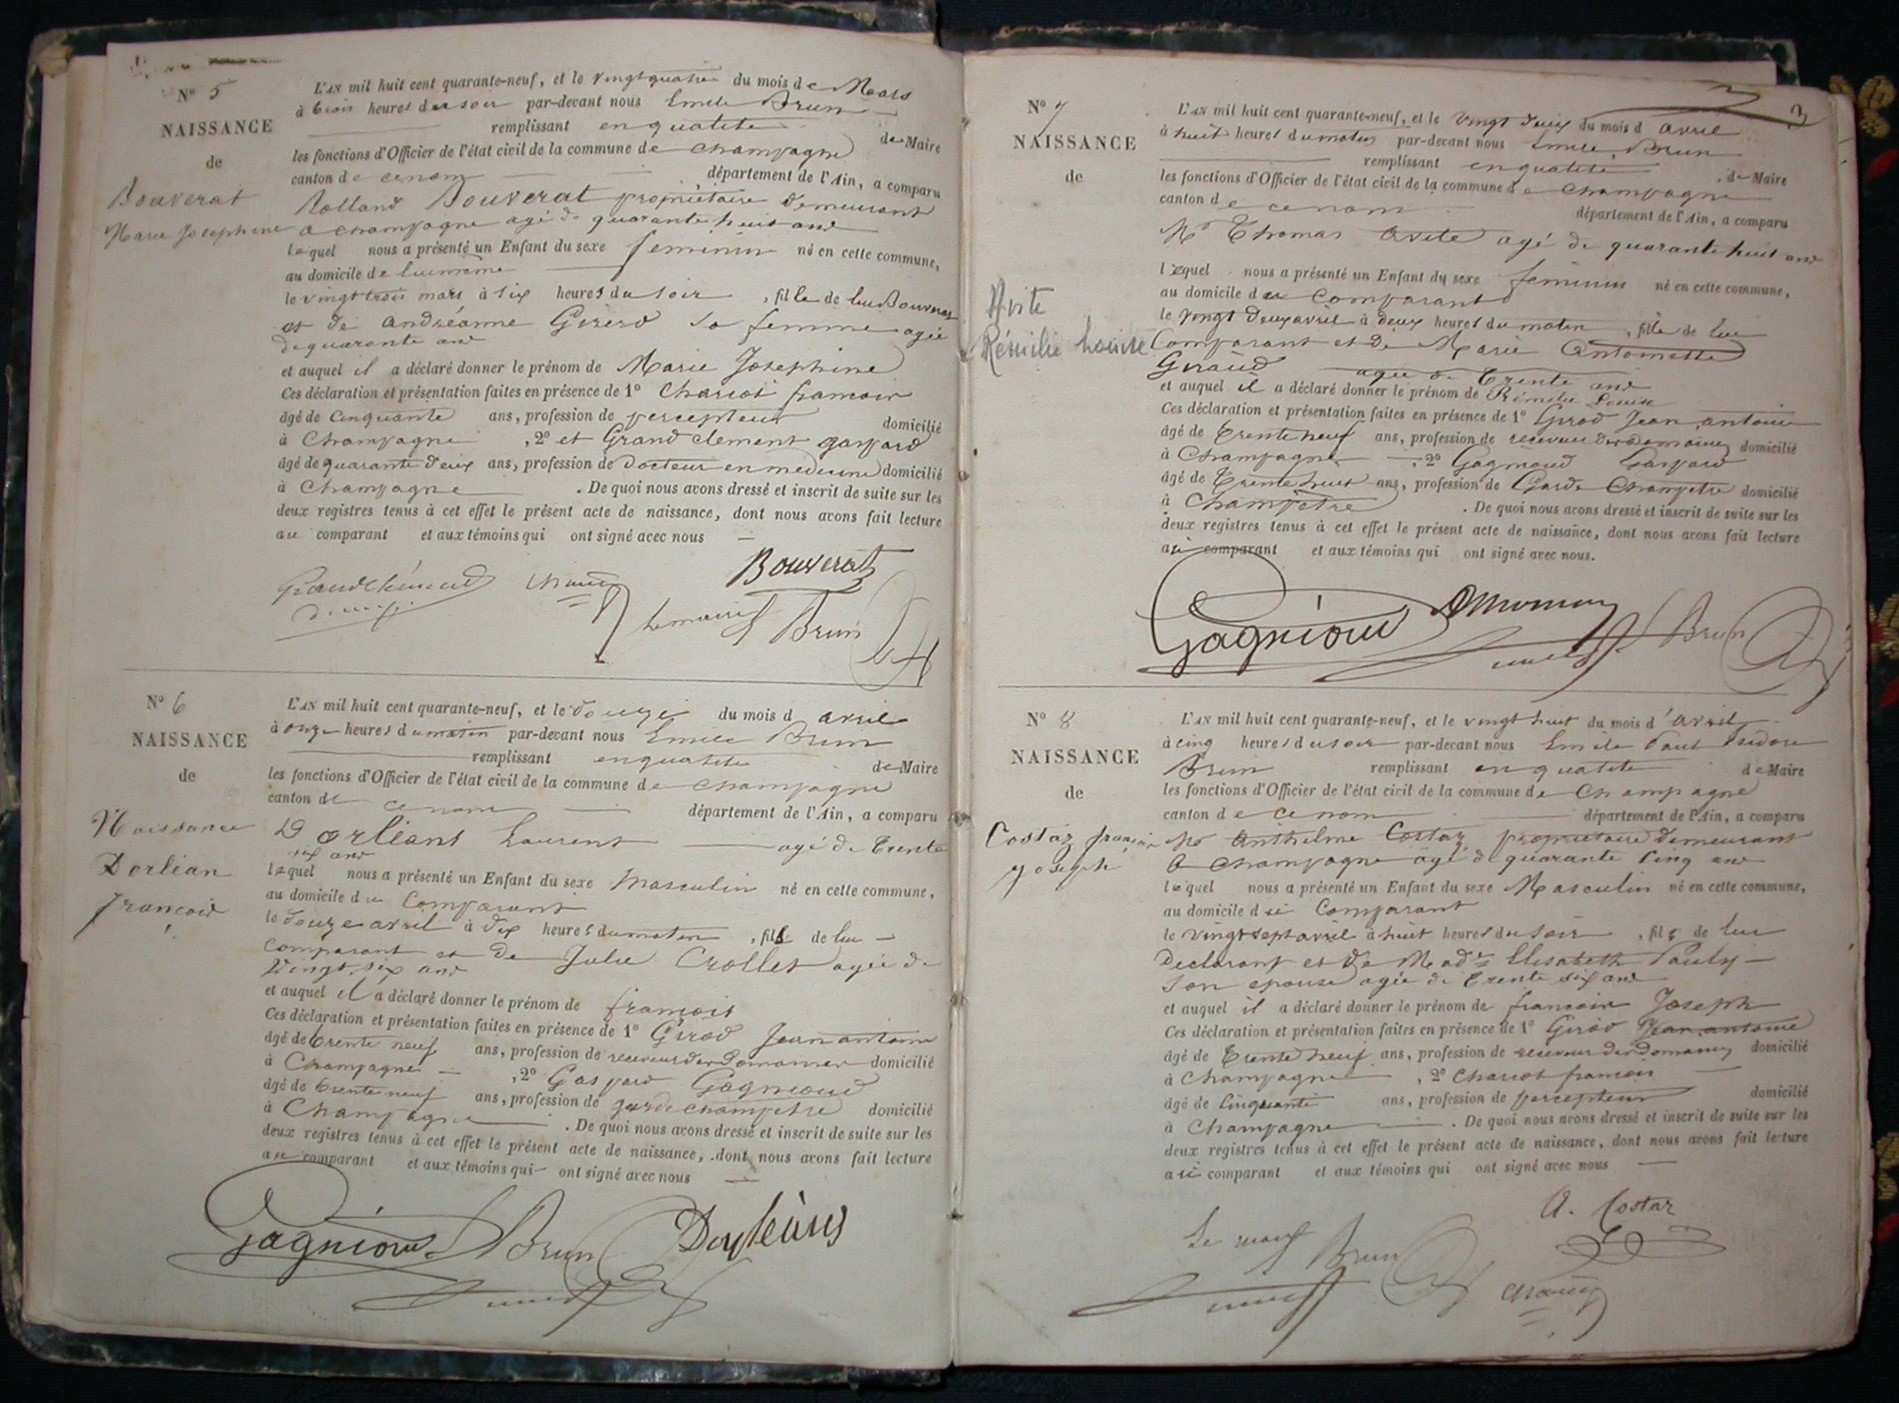 Nº 5
NAISSANCE
de
Bouverat
Marie Josephine
L'AN mil huit cent quarante-neuf, et le vingt quatre du mois de Mars
à trois heures du soir par-devant nous Emile Brun
remplissant en qualité de Maire
les fonctions d'Officier de l'état civil de la commune de Champagne
canton de département de l'Ain, a comparu
Rolland Bouverat propriétaire demeurant
a champagne agé de quarante huit ans
lequel nous a présenté un Enfant du sexe feminin né en cette commune,
au domicile de lui même
le vingt trois mars à six heures du soir, fille de lui Bouverat
et de andréanne Girerd sa femme agée
de quarante ans
et auquel il a déclaré donner le prénom de Marie Josephine
Ces déclaration et présentation faites en présence de 1º Charcot francois
âgé de Cinquante ans, profession de percepteur domicilié
à Champagne, 2º et Grand clement gaspard
âgé de quarante deux ans, profession de docteur en medecine domicilié
à Champagne. De quoi nous avons dressé et inscrit de suite sur les
deux registres tenus à cet effet le présent acte de naissance, dont nous avons fait lecture
au comparant et aux témoins qui ont signé avec nous
Bouverat
Grandclément
Le maire Brun
Nº 6
NAISSANCE
de
Naissance
Dorlean
françois
L'AN mil huit cent quarante-neuf, et le douze du mois d avril
à onze heures du matin par-devant nous Emile Brun
remplissant en qualité de Maire
les fonctions d'Officier de l'état civil de la commune de Champagne
canton de département de l'Ain, a comparu
Dorléans Laurent agé de Trente
six ans
lequel nous a présenté un Enfant du sexe Masculin né en cette commune,
au domicile du Comparant
le douze avril à dix heures du matin, fils de lui
comparant et de Julie Crollet agée de
Vingt six ans
et auquel il a déclaré donner le prénom de françois
Ces déclaration et présentation faites en présence de 1º Girod Jean antoine
âgé de trente neuf ans, profession de receveur des Domaines domicilié
à Champagne, 2º Gaspard Gagnioud
âgé de trente neuf ans, profession de garde champetre domicilié
à Champagne. De quoi nous avons dressé et inscrit de suite sur les
deux registres tenus à cet effet le présent acte de naissance, dont nous avons fait lecture
au comparant et aux témoins qui ont signé avec nous
Gagnioud Brun Dorléans
3
Nº 7
NAISSANCE
de
Avite
Rémilie Louise
L'AN mil huit cent quarante-neuf, et le vingt deux du mois d avril
à huit heures du matin par-devant nous Emile Brun
remplissant en qualité de Maire
les fonctions d'Officier de l'état civil de la commune de Champagne
canton de département de l'Ain, a comparu
Mr Thomas Avite agé de quarante huit ans
lequel nous a présenté un Enfant du sexe feminin né en cette commune,
au domicile du Comparant
le vingt deux avril à deux heures du matin, fille de lui
Comparant et de Marie Antoinette
Giraud agée de Trente ans
et auquel il a déclaré donner le prénom de Rémilie Louise
Ces déclaration et présentation faites en présence de 1º Girod Jean antoine
âgé de trente neuf ans, profession de receveur des domaines domicilié
à Champagne, 2º Gagnioud Gaspard
âgé de Trente huit ans, profession de Garde Champetre domicilié
à Champetre. De quoi nous avons dressé et inscrit de suite sur les
deux registres tenus à cet effet le présent acte de naissance, dont nous avons fait lecture
au comparant et aux témoins qui ont signé avec nous.
Gagnioud Brun
Nº 8
NAISSANCE
de
Costaz françois
joseph
L'AN mil huit cent quarante-neuf, et le vingt huit du mois d'avril
à cinq heures du soir par-devant nous Emile Paul Isidore
Brun remplissant en qualité de Maire
les fonctions d'Officier de l'état civil de la commune de Champagne
canton de département de l'Ain, a comparu
Mr Anthelme Costaz propriétaire demeurant
a Champagne agé de quarante Cinq ans
lequel nous a présenté un Enfant du sexe Masculin né en cette commune,
au domicile du Comparant
le vingt sept avril à huit heures du soir, fils de lui
Declarant et de Made Elisabeth Pauly
son epouse agée de Trente six ans
et auquel il a déclaré donner le prénom de francois Joseph
Ces déclaration et présentation faites en présence de 1º Girod Jean antoine
âgé de Trente neuf ans, profession de receveur des domaines domicilié
à Champagne, 2º Charcot francois
âgé de Cinquante ans, profession de percepteur domicilié
à Champagne. De quoi nous avons dressé et inscrit de suite sur les
deux registres tenus à cet effet le présent acte de naissance, dont nous avons fait lecture
au comparant et aux témoins qui ont signé avec nous
A. Costaz
Le maire Brun